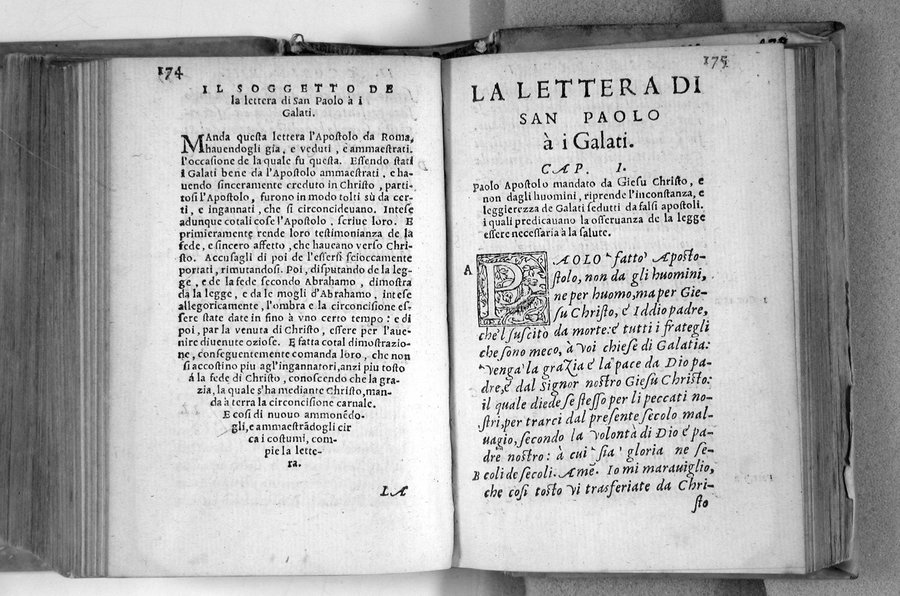 174
IL SOGGETTO DE
la lettera di San Paolo à i
Galati.
MAnda questa lettera l'Apostolo da Roma,
hauendogli gia, e veduti, e ammaestrati.
l'occasione de la quale fu questa. Essendo stati
i Galati bene da l'Apostolo ammaestrati, e ha-
uendo sinceramente creduto in Christo, parti-
tosi l'Apostolo, furono in modo tolti sù da cer-
ti, e ingannati, che si circoncideuano. Intese
adunque cotali cose l'Apostolo, scriue loro. E
primieramente rende loro testimonianza de la
fede, e sincero affetto, che haueano verso Chri-
sto. Accusagli di poi de l'essersi scioccamente
portati, rimutandosi. Poi, disputando de la leg-
ge, e de la fede secondo Abrahamo, dimostra
da la legge, e da le mogli d'Abrahamo, intese
allegoricamente, l'ombra e la circoncisione es-
sere state date in fino à vno certo tempo: e di
poi, par la venuta di Christo, essere per l'aue-
nire diuenute oziose. E fatta cotal dimostrazio-
ne, conseguentemente comanda loro, che non
si accostino piu agl'ingannatori, anzi piu tosto
à la fede di Christo, conoscendo che la gra-
zia, la quale s'ha mediante Christo, man-
da à terra la circoncisione carnale.
E cosi di nuouo ammonẽdo-
gli, e ammaestrãdogli cir
ca i costumi, com-
pie la lette-
ra.
LA
175
LA LETTERA DI
SAN PAOLO
à i Galati.
CAP. I.
Paolo Apostolo mandato da Giesu Christo, e
non dagli huomini, riprende l'inconstanza, e
leggierezza de Galati sedutti da falsi apostoli.
i quali predicauano la osseruanza de la legge
essere necessaria à la salute.
A
PAOLO fatto Aposto-
stolo, non da gli huomini,
ne per huomo, ma per Gie-
su Christo, e Iddio padre,
che'l suscitò da morte: e tutti i frategli
che sono meco, à voi chiese di Galatia:
venga la grazia e la pace da Dio pa-
dre, e dal Signor nostro Giesu Christo:
il quale diede se stesso per li peccati no-
stri, per trarci dal presente secolo mal-
uagio, secondo la volontà di Dio e pa-
dre nostro: à cui sia gloria ne se-
B coli de secoli. Amẽ. Io mi marauiglio,
che cosi tosto vi trasferiate da Chri-
sto